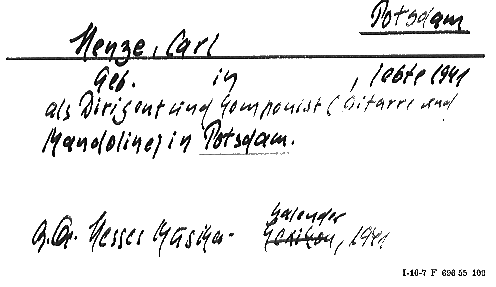 Potsdam
Henze, Carl
Geb. in , lebte 1941
als Dirigent und Componist (Gitarre und
Mandoline) in Potsdam.
Kalender
Hesses Musiker- Lexikon, 1941
I-16-7 F 696 55 100